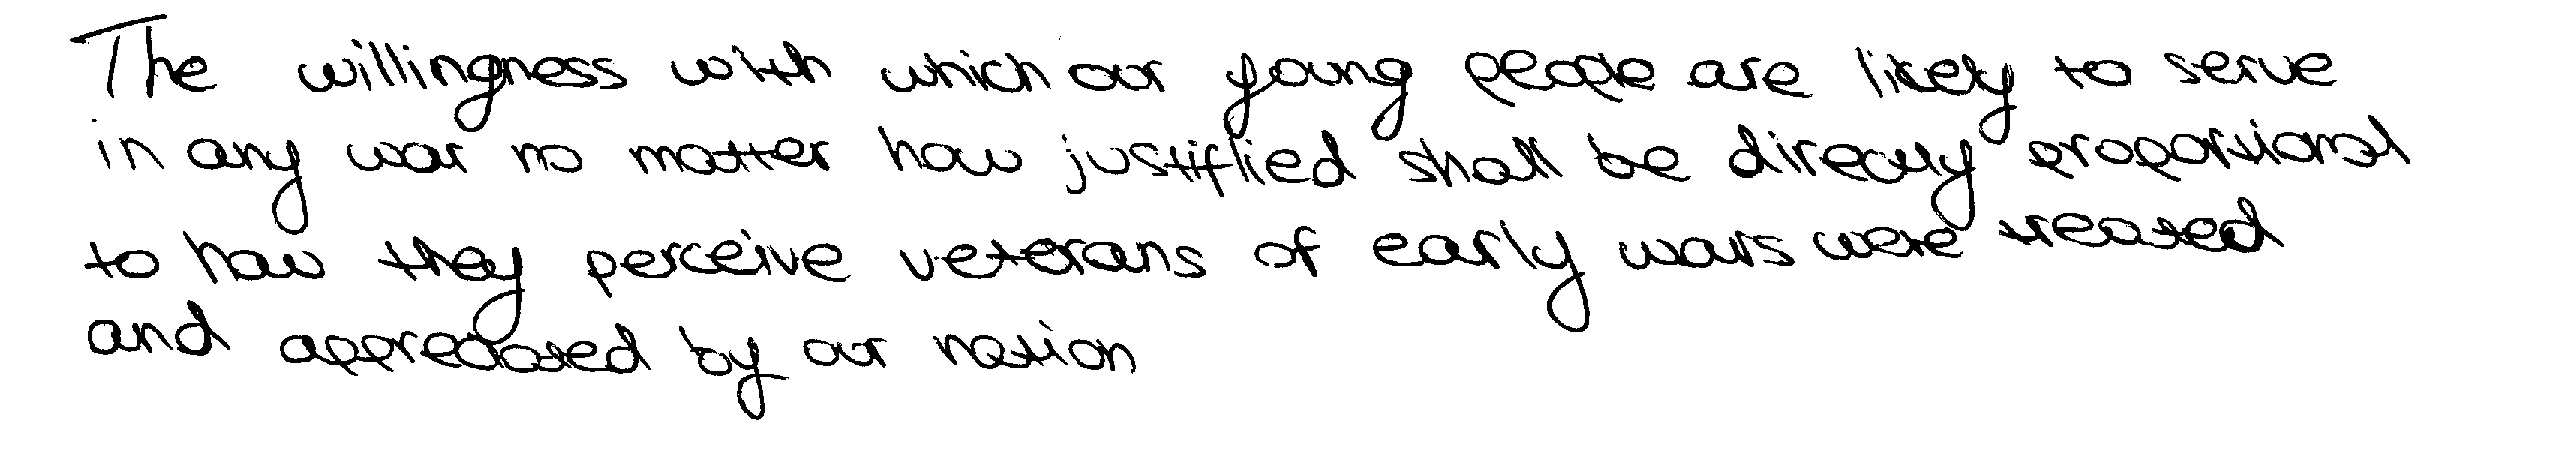 The willingness with which our young people are likely to serve
in any war no matter how justified shall be directly proportional
to how they perceive veterans of early wars were treated
and appreciated by our nation